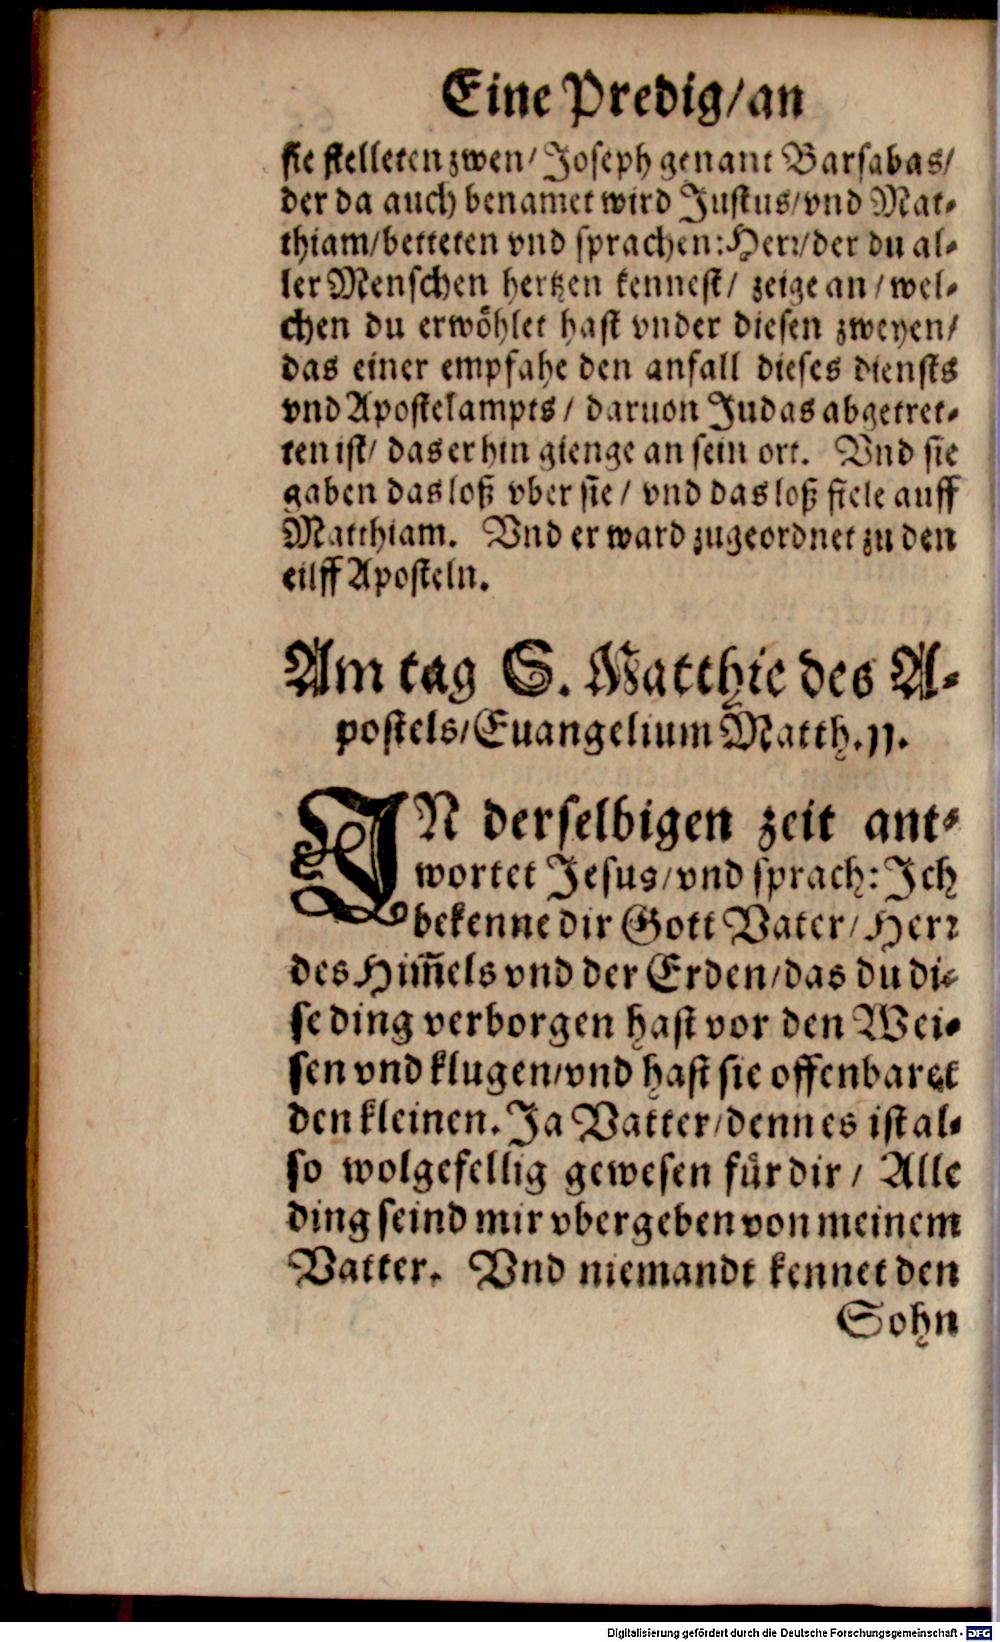 Eine Predig/an
sie stelleten zwen/ Joseph genant Barsabas/
der da auch benamet wird Justus/vnd Mat-
thiam/betteten vnd sprachen: Herr/der du al-
ler Menschen hertzen kennest/ zeige an/wel-
chen du erwöhlet hast vnder diesen zweyen/
das einer empfahe den anfall dieses diensts
vnd Apostelampts/ daruon Judas abgetret-
ten ist/ das er hin gienge an sein ort. Vnd sie
gaben das loß vber sie/ vnd das loß fiele auff
Matthiam. Vnd er ward zugeordnet zu den
eilff Aposteln.
Am tag S. Matthie des A-
postels/Euangelium Matth. 11.
IN derselbigen zeit ant-
wortet Jesus/vnd sprach: Ich
bekenne dir Gott Vater/Herr
des Him̄els vnd der Erden/das du di-
se ding verborgen hast vor den Wei-
sen vnd klugen/vnd hast sie offenbaret
den kleinen. Ja Vatter/denn es ist al-
so wolgefellig gewesen für dir/ Alle
ding seind mir vbergeben von meinem
Vatter. Vnd niemandt kennet den
Sohn
Digitalisierung gefördert durch die Deutsche Forschungsgemeinschaft - DFG